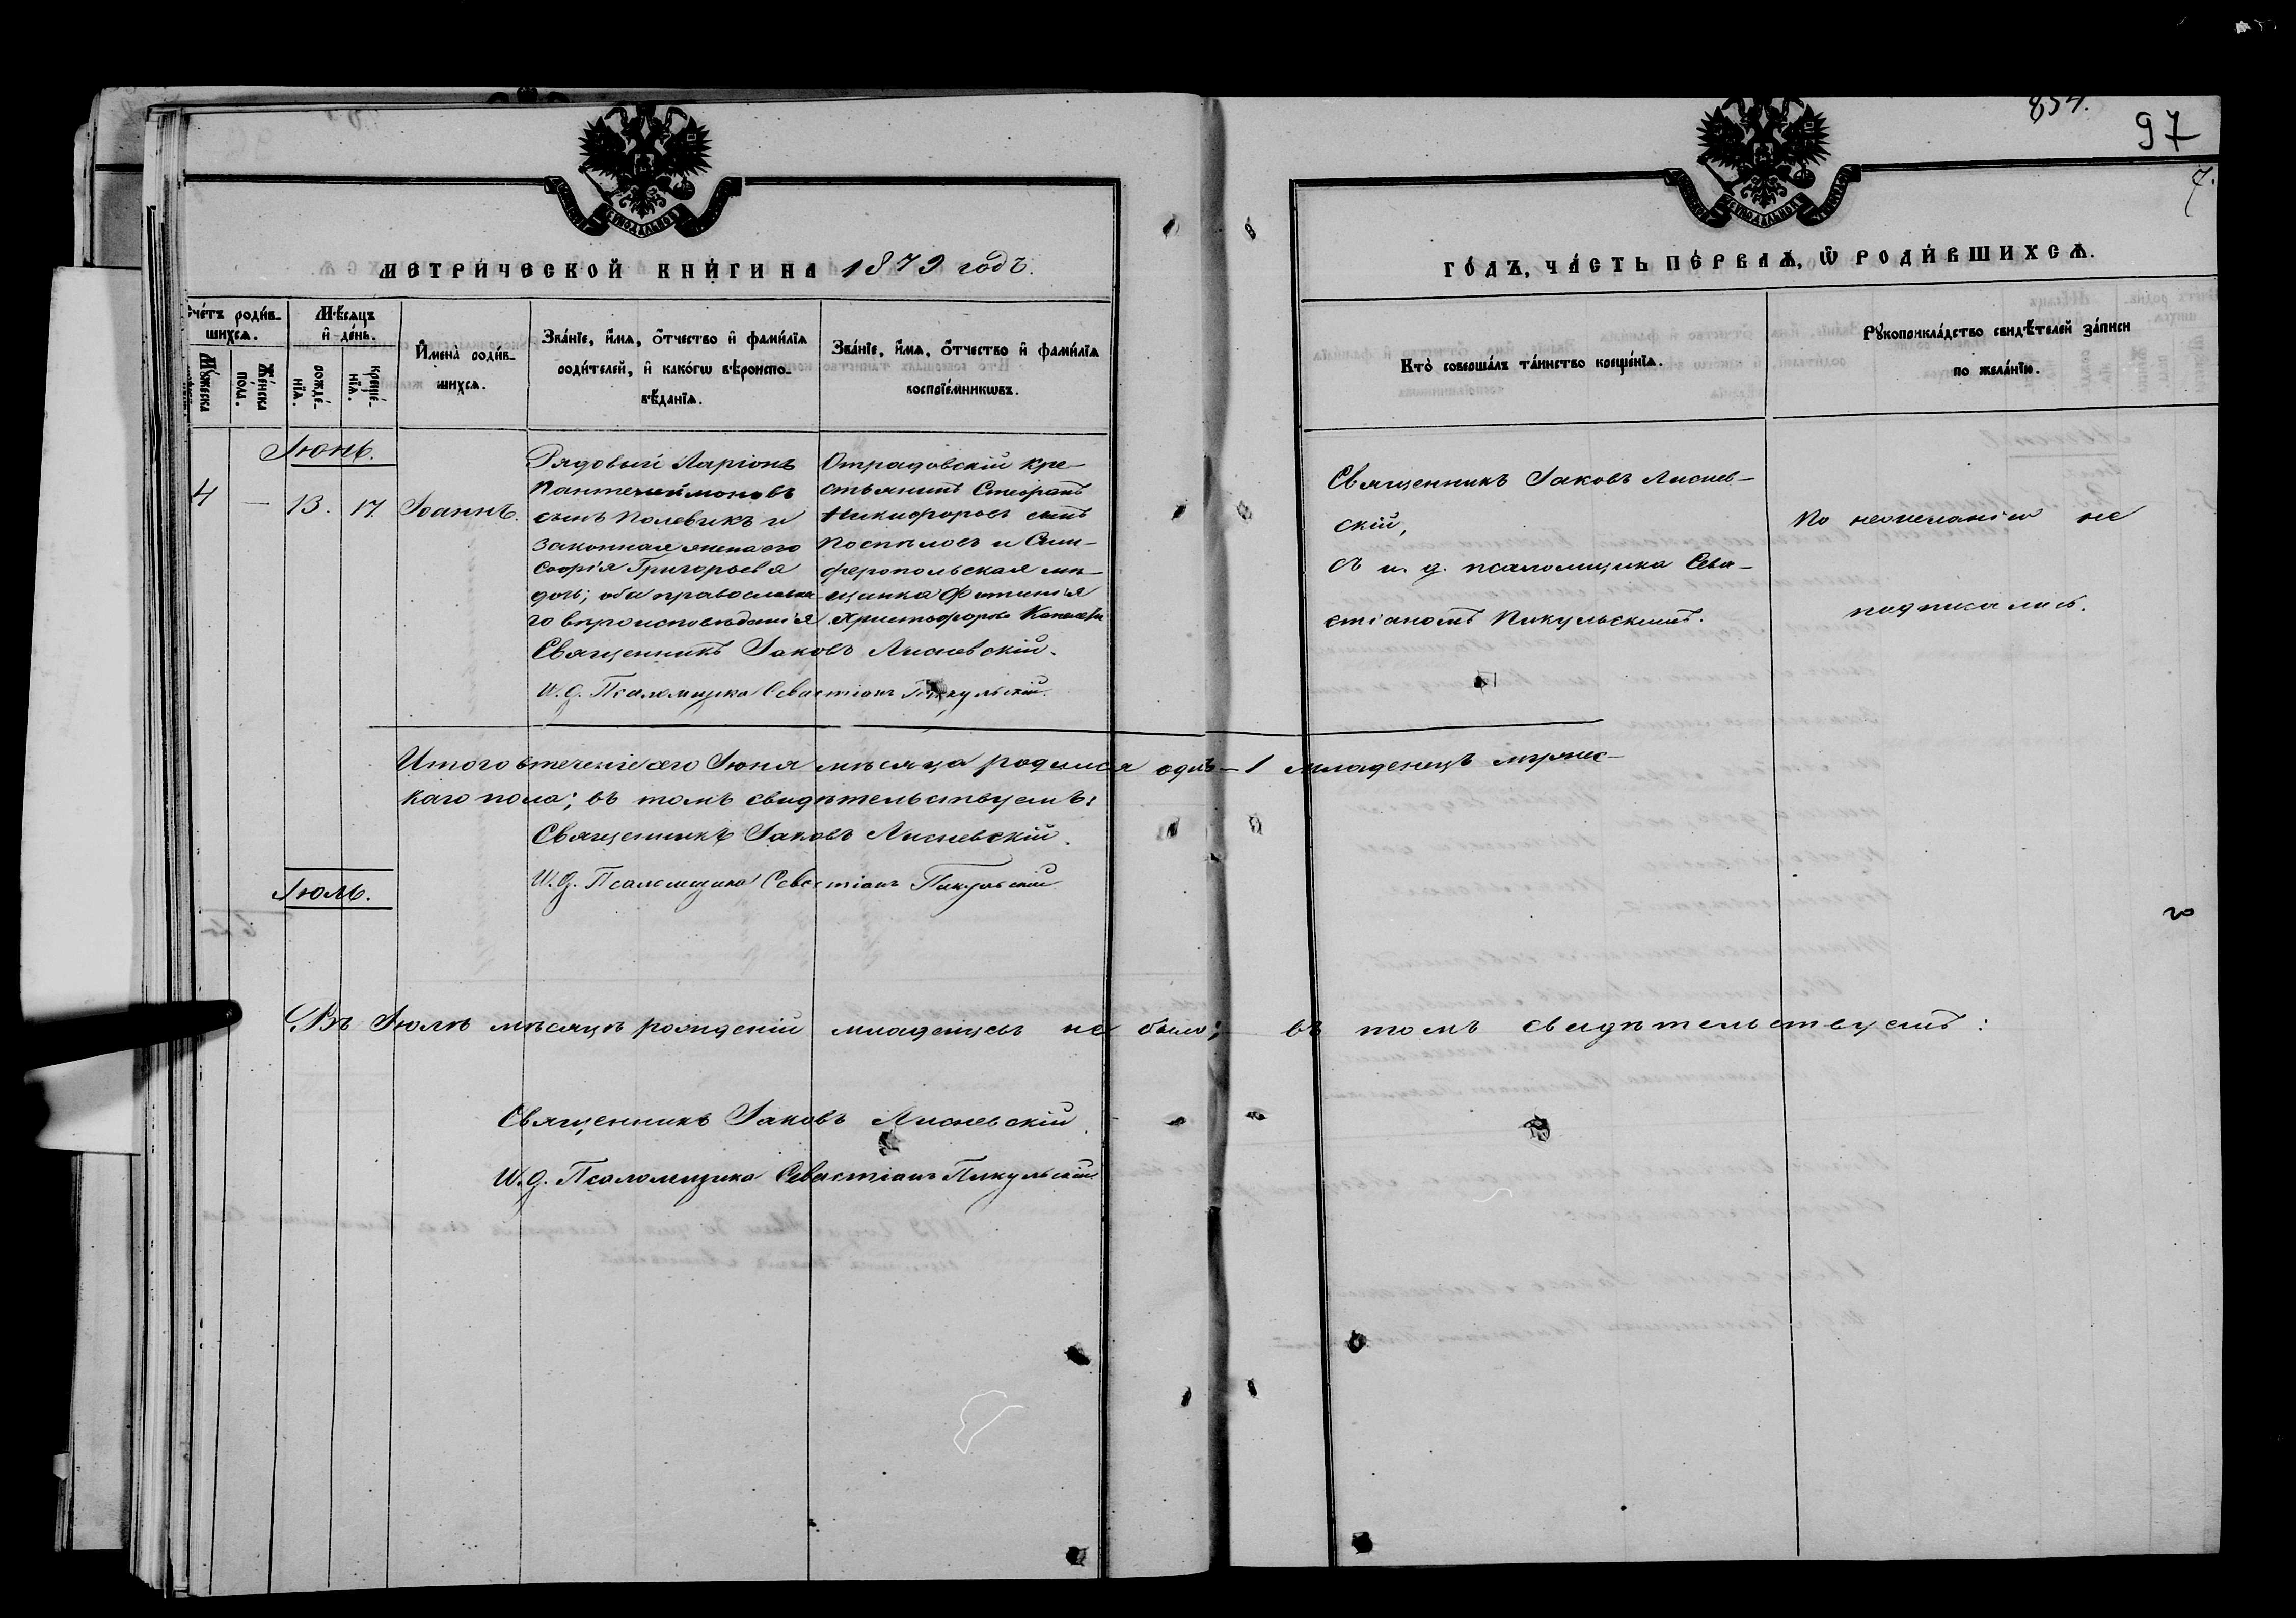 854.
97
7.
МЕТРИ́ЧЕСКОЙ КНИ́ГИ НА 1879 годъ.
ГО́ДЪ, ЧА́СТЬ ПЕ́РВАѦ, Ѡ҆ РОДИ́ВШИХСѦ.
Сче́тъ роди́в-
шихсѧ.
Мꙋ́жеска
Же́нска
пола.
Мѣ́сѧцъ
и҆ де́нь.
рожде́-
нїѧ.
креще́-
нїѧ.
И҆мена̀ роди́в-
шихсѧ.
Зва́нїе, и҆́мѧ, ѻ҆́тчество и҆ фами́лїѧ
роди́телей, и҆ како́гѡ вѣроиспо-
вѣ́данїѧ.
Зва́нїе, и҆́мѧ, ѻ҆́тчество и҆ фами́лїѧ
воспрїе́мникѡвъ.
Кто̀ соверша́лъ та́инство креще́нїѧ.
Рꙋкоприкла́дство свидѣ́телей за́писи
по жела́нїю.
Іюнь.
4 — 13. 17. Іоаннъ.
Рядовый Ларіонъ
Пантелеймоновъ
сынъ Полевикъ и
законная жена его
Софія Григорьева
дочь; оба православна-
го вѣроисповѣданія
Отрадовскій кре-
стьянинъ Стефанъ
Никифоровъ сынъ
Поспѣловъ и Сим-
феропольская мѣ-
щанка Фотинія
Христофорова
Священникъ Іаковъ Лисневскій.
И. д. Псаломщика Севастіанъ Пикульскій.
Священникъ Іаковъ Лиснев-
скій,
съ и. д. псаломщика Сева-
стіаномъ Пикульскимъ.
По неожеланію не
подписались.
Итого втеченіе сего Іюня мѣсяца родился одинъ — 1 младенецъ мужес-
каго пола; въ томъ свидѣтельствуемъ:
Священникъ Іаковъ Лисневскій.
И. д. Псаломщика Севастіанъ Пикульскій
Іюль.
Въ Іюлѣ мѣсяцѣ рожденій младенцевъ не было; въ томъ свидѣтельствуемъ:
Священникъ Іаковъ Лисневскій.
И. д. Псаломщика Севастіанъ Пикульскій